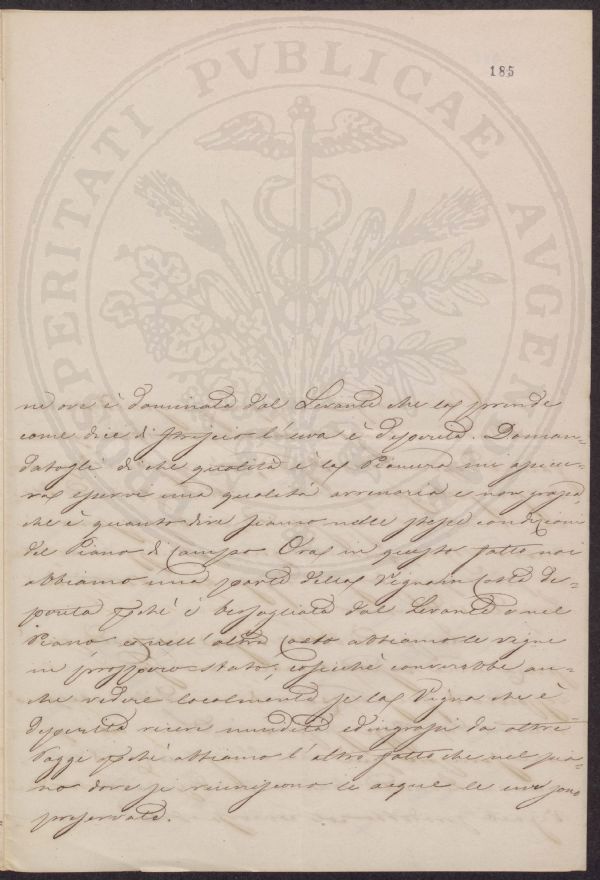 185
PROSPERITATI PVBLICAE AVGENDAE
ne ove è dominata dal Levante che las prende
come dice di striscio l'uva è desperita. Doman-
datogli di che qualità è las Pianura mi assicu-
ras essere una qualità arrenaria e non grassa
che è quanto dire siamo nelle stesse condizioni
del Piano di Campo. Oras in questo fatto noi
abbiamo una parte dellas Vigna in Costa de-
perita è bersagliata dal Levante o nel
Piano e nell'altro Caso abbiamo le vigne
in prospero stato; cosichè converrebbe an-
che vedere localmente se las Vigna che è
desperita riceve umidità ed ingrassi da altre
Piagge abbiamo l'altro fatto che nel pia-
no dove si riuniscono le acque le uve sono
preservate.